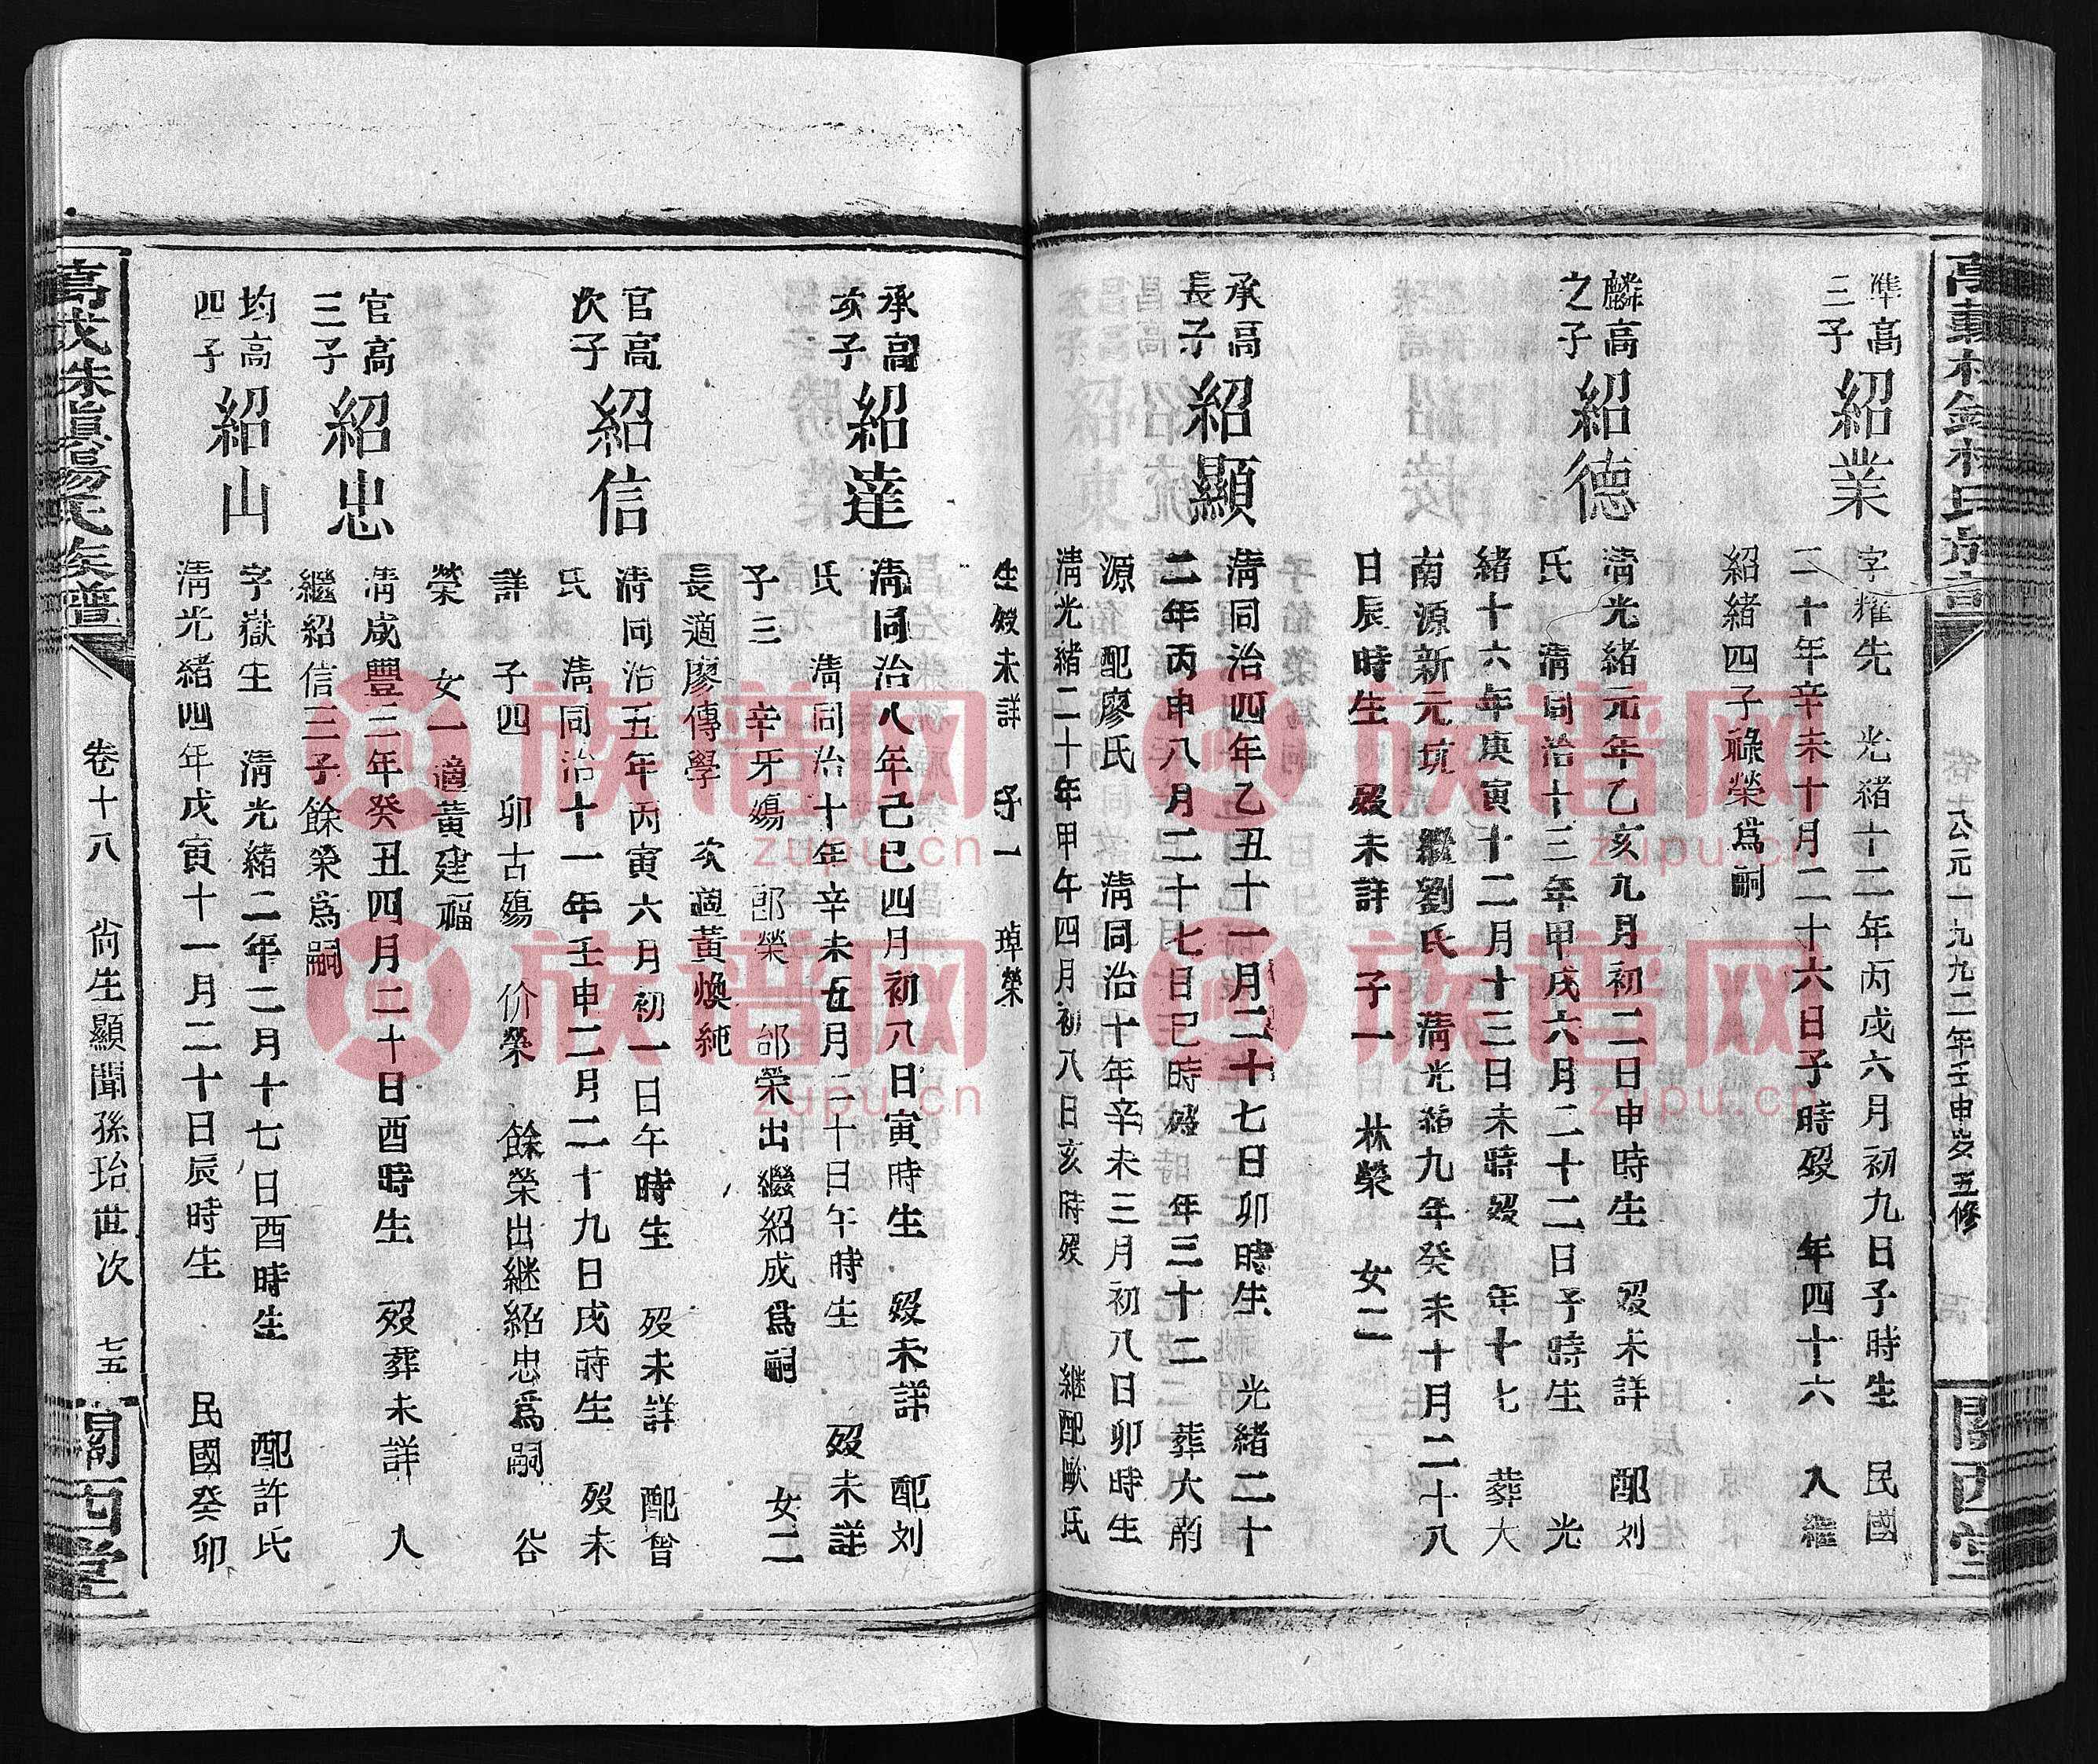 公元一九九二年壬申岁五修
關西堂
準高
三子
紹業
字耀先　光緒十二年丙戌六月初九日子時生　民國
二十年辛未十月二十六日子時歿　年四十六　入繼
紹緒四子祿榮爲嗣
麟高
之子
紹德
清光緒元年乙亥九月初二日申時生　歿未詳　配刘
氏　清同治十三年甲戌六月二十二日子時生　光
緒十六年庚寅十二月十三日未時歿　年十七　葬大
南源新元坑　繼劉氏　清光緒九年癸未十月二十八
日辰時生　歿未詳　子一　林榮　女二
承高
長子
紹顯
清同治四年乙丑十一月二十七日卯時生　光緒二十
二年丙申八月二十七日巳時歿　年三十二　葬大南
源　配廖氏　清同治十年辛未三月初八日卯時生
清光緒二十年甲午四月初八日亥時歿　継配歐氏
生歿未詳　子一　琸榮
承高
次子
紹達
清同治八年己巳四月初八日寅時生　歿未詳　配刘
氏　清同治十年辛未五月二十日午時生　歿未詳
子三　辛牙殤　郎榮　郃榮出繼紹成爲嗣　女二
長適廖傳學　次適黃煥純
官高
次子
紹信
清同治五年丙寅六月初一日午時生　歿未詳　配曾
氏　清同治十一年壬申二月二十九日戌時生　歿未
詳　子四　卯古殤　价榮　餘榮出継紹忠爲嗣　谷
榮　女一　適黃建福
官高
三子
紹忠
清咸豐三年癸丑四月二十日酉時生　歿葬未詳　入
繼紹信三子餘榮爲嗣
均高
四子
紹山
字嶽生　清光緒二年二月十七日酉時生　配許氏
清光緒四年戊寅十一月二十日辰時生　民國癸卯
氏族譜
卷十八　尚生顯聞孫珆世次　七五
關西堂
族谱网
zupu.cn
族谱网
zupu.cn
族谱网
zupu.cn
族谱网
zupu.cn